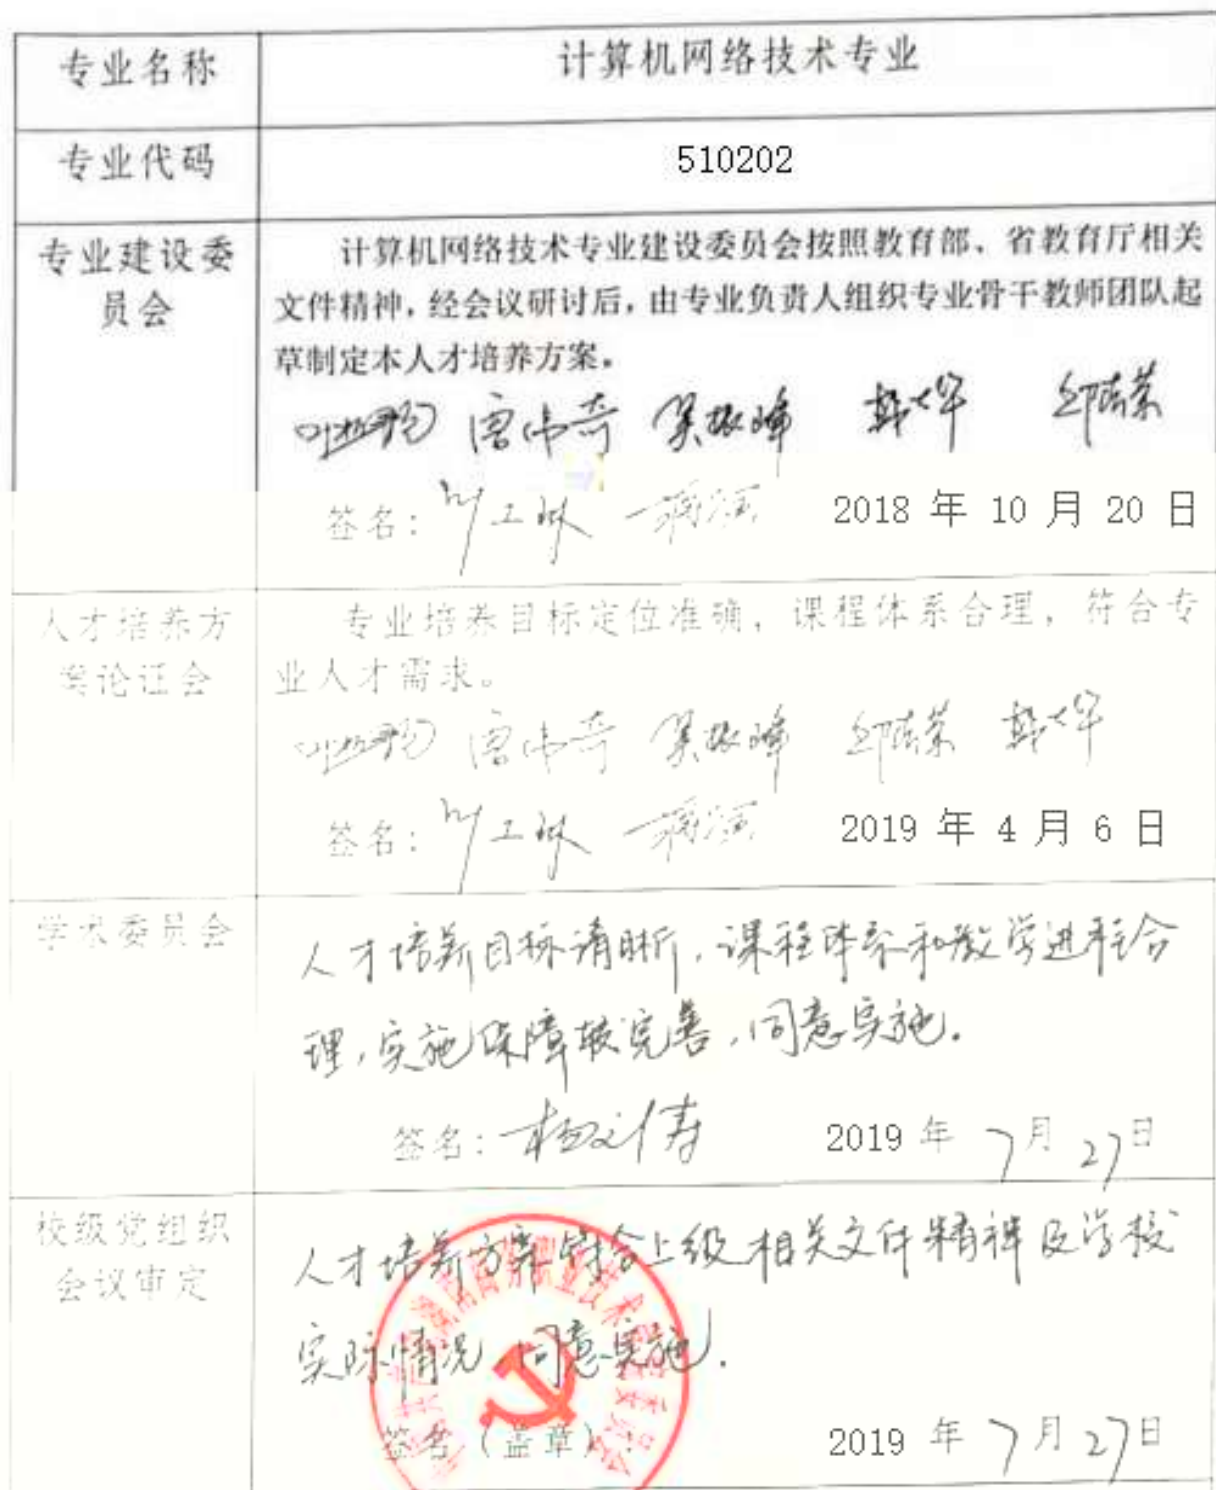 专业名称
计算机网络技术专业
专业代码
510202
专业建设委
员会
计算机网络技术专业建设委员会按照教育部、省教育厅相关
文件精神，经会议研讨后，由专业负责人组织专业骨干教师团队起
草制定本人才培养方案。
唐伟奇 吴振峰
签名：
2018 年 10 月 20 日
人才培养方
案论证会
专业培养目标定位准确，课程体系合理，符合专
业人才需求。
唐伟奇 吴振峰
签名：
2019 年 4 月 6 日
学术委员会
人才培养目标清晰，课程体系和教学进程合
理，实施保障较完善，同意实施。
签名：
2019 年 7月 27日
校级党组织
会议审定
人才培养方案符合上级相关文件精神及学校
实际情况，同意实施。
签名（盖章）：
2019 年 7月 27日